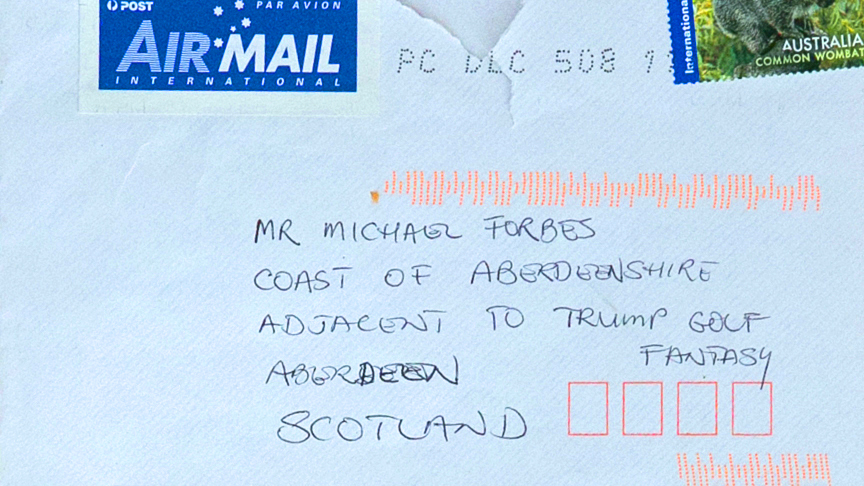 POST PAR AVION
AIR MAIL
INTERNATIONAL
PC DLC 508 1
International
AUSTRALIA
COMMON WOMBAT
MR MICHAEL FORBES
COAST OF ABERDEENSHIRE
ADJACENT TO TRUMP GOLF
FANTASY
ABERDEEN
SCOTLAND